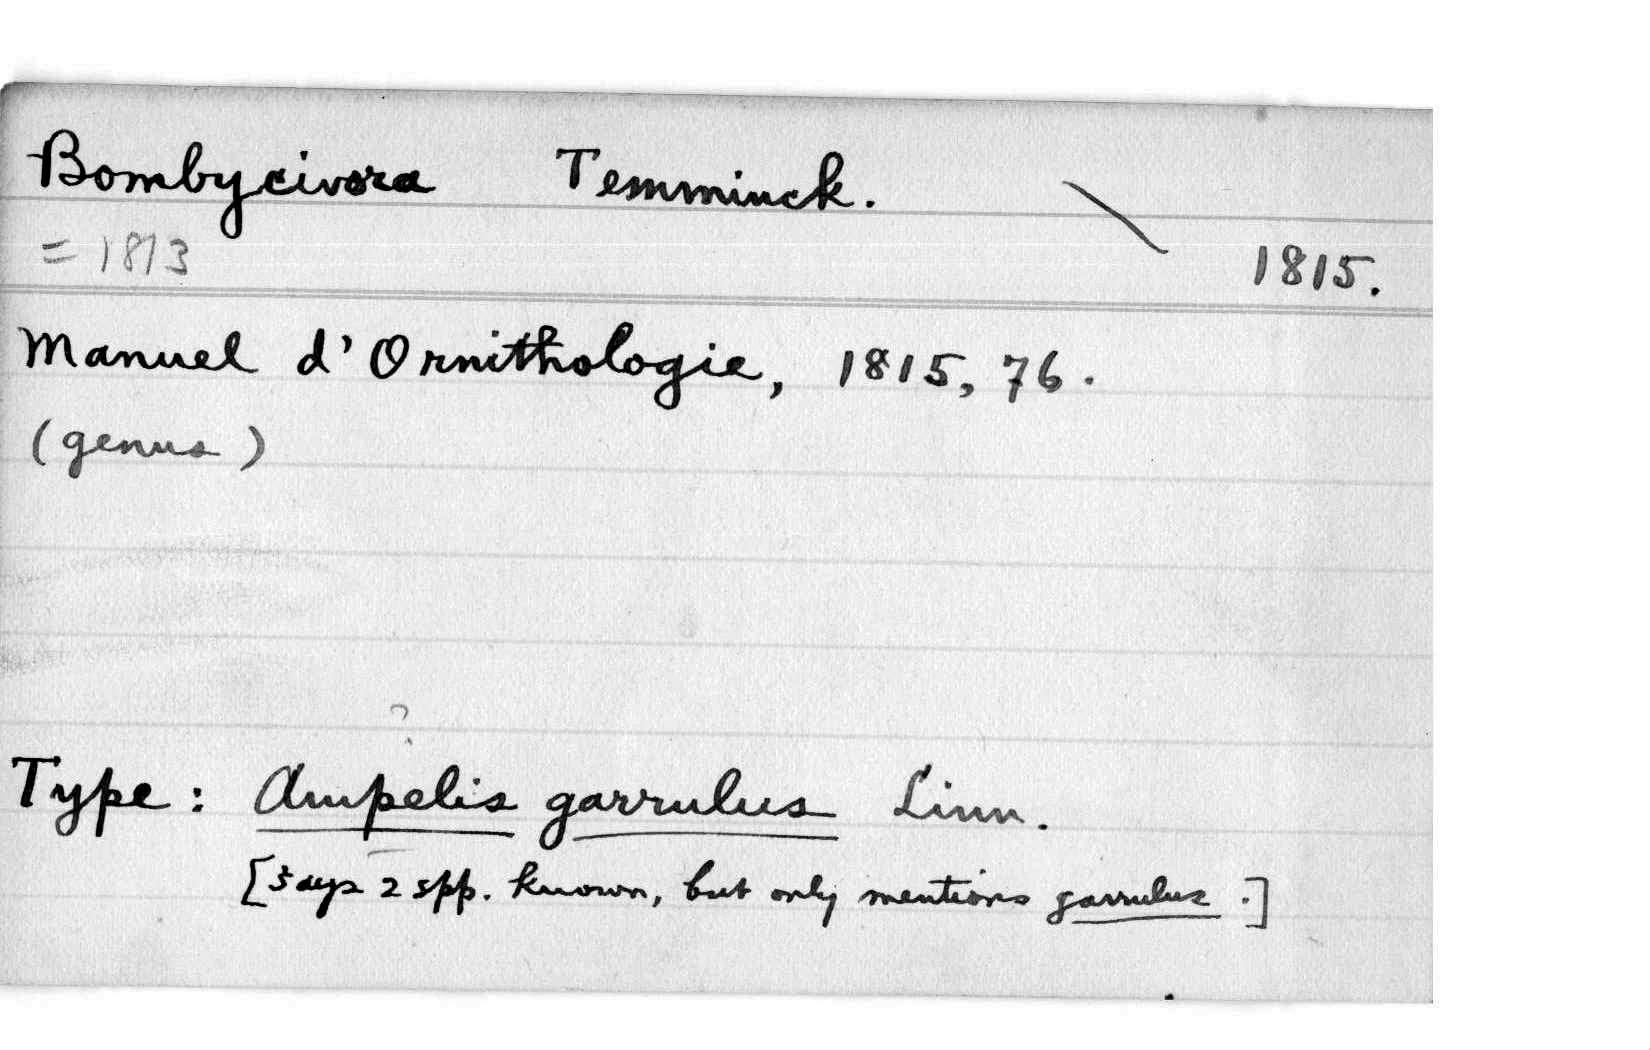 Bombycivora Temminck.
= 1813
1815.
Manuel d'Ornithologie, 1815, 76.
(genus)
?
Type: Ampelis garrulus Linn.
[Says 2 spp. known, but only mentions garrulus.]